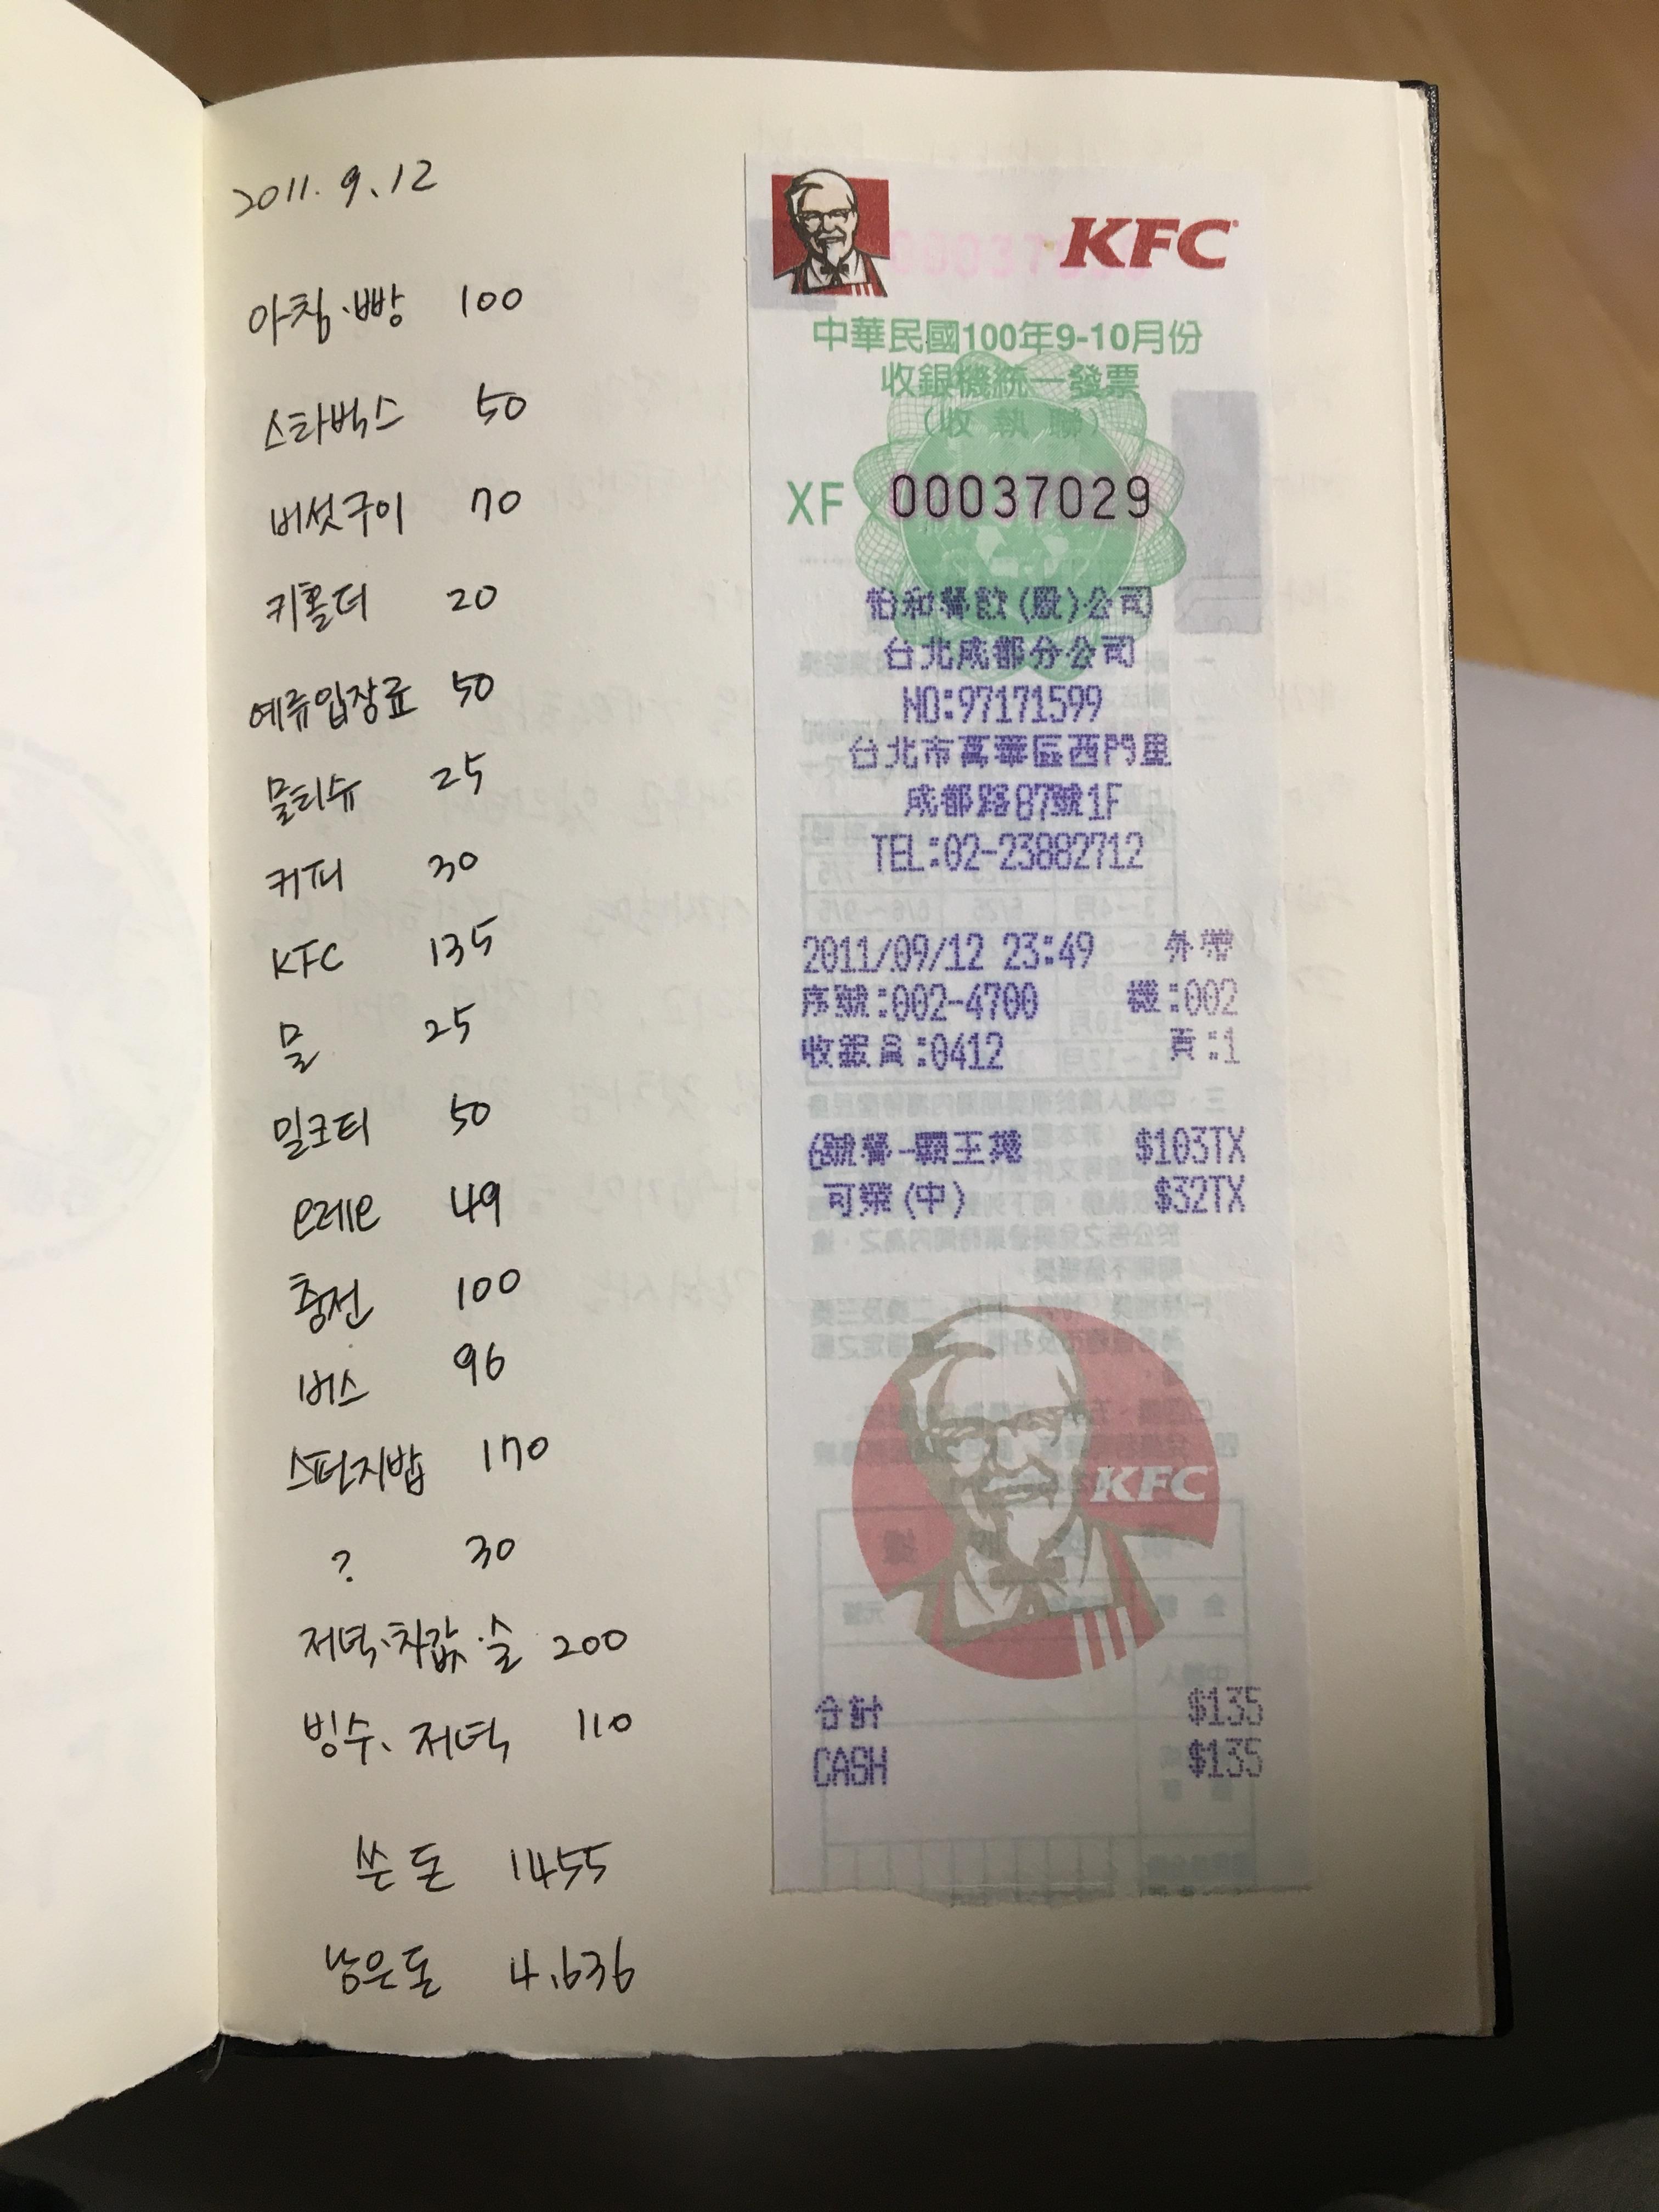 2011. 9. 12
아침·빵 100
스타벅스 50
버섯구이 70
키홀더 20
예류입장료 50
물티슈 25
커피 30
KFC 135
물 25
밀크티 50
100
버스 96
49
충전
스펀지밥 170
? 30
저녁·차값·술 200
빙수、저녁 110
쓴 돈 1455
남은돈 4,636
KFC
中華民國100年9-10月份
收銀機統一發票
(收執聯)
XF 00037029
怡和餐飲(股)公司
台北成都分公司
NO:97171599
台北市萬華區西門里
成都路87號1F
TEL:02-23882712
2011/09/12 23:49 外帶
序號:002-4700 機:002
收銀員:0412 頁:1
號餐-霸王 $103TX
可樂(中) $32TX
KFC
合計 $135
CASH $135